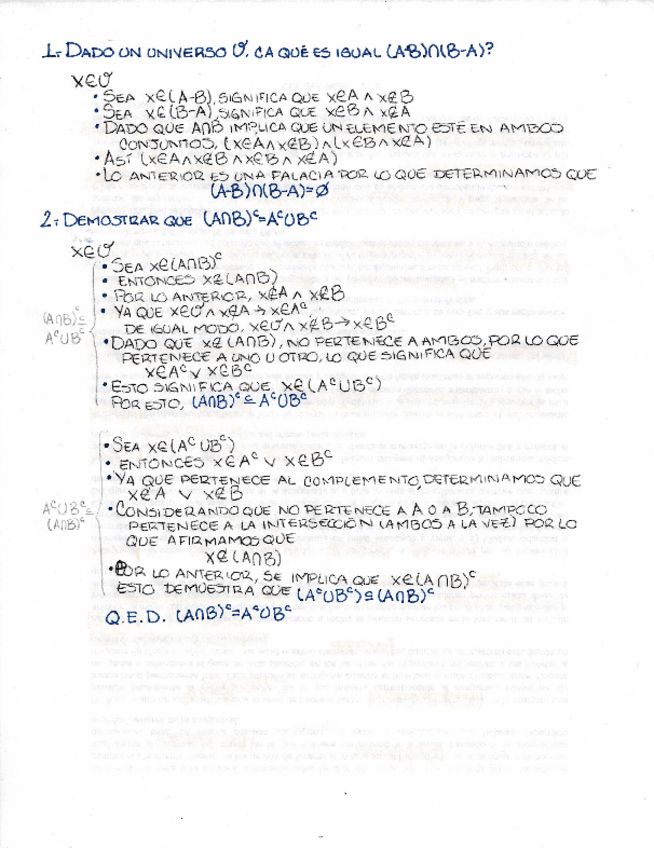 1.- DADO UN UNIVERSO U. ¿A QUÉ ES IGUAL (A-B)∩(B-A)?
X∈U
• SEA X∈(A-B), SIGNIFICA QUE X∈A ∧ X∉B
• SEA X∈(B-A), SIGNIFICA QUE X∈B ∧ X∉A
• DADO QUE A∩B IMPLICA QUE UN ELEMENTO ESTÉ EN AMBOS
CONJUNTOS, (X∈A∧X∉B)∧(X∈B∧X∉A)
• ASÍ (X∈A∧X∉B∧X∈B∧X∉A)
• LO ANTERIOR ES UNA FALACIA POR LO QUE DETERMINAMOS QUE
(A-B)∩(B-A)=∅
2.- DEMOSTRAR QUE (A∩B)ᶜ=AᶜUBᶜ
X∈U
• SEA X∈(A∩B)ᶜ
• ENTONCES X∉(A∩B)
• POR LO ANTERIOR, X∉A ∧ X∉B
• YA QUE X∈U∧X∉A→X∈Aᶜ.
DE IGUAL MODO, X∈U∧X∉B→X∈Bᶜ
(A∩B)ᶜ⊆
AᶜUBᶜ
• DADO QUE X∉(A∩B), NO PERTENECE A AMBOS, POR LO QUE
PERTENECE A UNO U OTRO, LO QUE SIGNIFICA QUE
X∈Aᶜ∨ X∈Bᶜ
• ESTO SIGNIFICA QUE, X∈(AᶜUBᶜ)
POR ESTO, (A∩B)ᶜ⊆AᶜUBᶜ
• SEA X∈(AᶜUBᶜ)
• ENTONCES X∈Aᶜ ∨ X∈Bᶜ
• YA QUE PERTENECE AL COMPLEMENTO, DETERMINAMOS QUE
X∉A ∨ X∉B
AᶜUBᶜ⊆
(A∩B)ᶜ
• CONSIDERANDO QUE NO PERTENECE A A O A B, TAMPOCO
PERTENECE A LA INTERSECCIÓN (AMBOS A LA VEZ) POR LO
QUE AFIRMAMOS QUE
X∉(A∩B)
• POR LO ANTERIOR, SE IMPLICA QUE X∈(A∩B)ᶜ
ESTO DEMUESTRA QUE (AᶜUBᶜ)⊆(A∩B)ᶜ
Q.E.D. (A∩B)ᶜ=AᶜUBᶜ